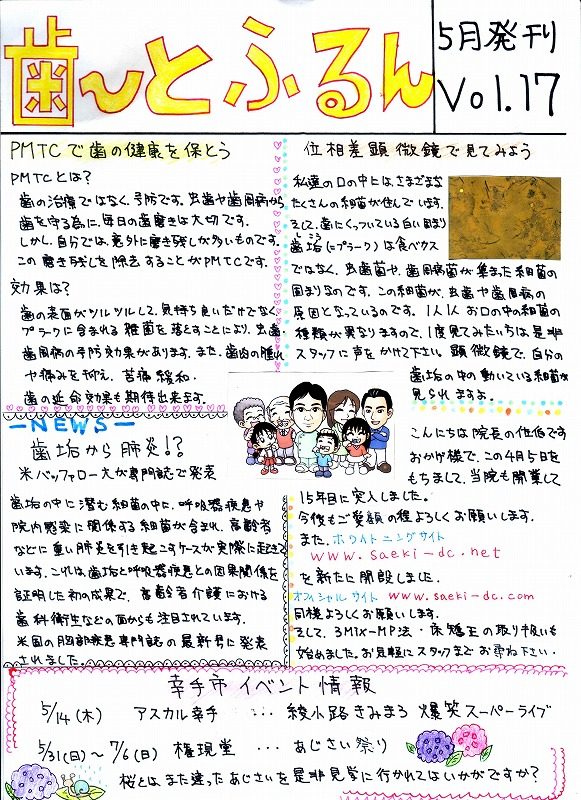 歯～とふるん
5月発刊
Vol.17
PMTCで歯の健康を保とう
PMTCとは?
歯の治療ではなく、予防です。虫歯や歯周病から
歯を守る為に、毎日の歯磨きは大切です。
しかし、自分では、意外に磨き残しが多いものです。
この磨き残しを除去することがPMTCです。
効果は?
歯の表面がツルツルして、気持ち良いだけでなく
プラークに含まれる雑菌を落とすことにより、虫歯・
歯周病の予防効果があります。また、歯肉の腫れ
や痛みを抑え、苦痛緩和・
歯の延命効果も期待出来ます。
位相差顕微鏡で見てみよう
私達の口の中には、さまざまな
たくさんの細菌が住んでいます。
そして、歯にくっついている白い固まり
歯垢(=プラーク)は食べカス
しこう
ではなく、虫歯菌や、歯周病菌が集まった細菌の
固まりなのです。この細菌が、虫歯や歯周病の
原因となっているのです。1人1人お口の中の細菌の
種類が異なりますので、1度見てみたい方は是非
スタッフに声をかけて下さい。顕微鏡で、自分の
歯垢の中の動いている細菌が
見られますよ。
-NEWS-
歯垢から肺炎!?
米バッファロー大が専門誌で発表
歯垢の中に潜む細菌の中に、呼吸器疾患や
院内感染に関係する細菌が含まれ、高齢者
などに重い肺炎を引き起こすケースが実際に起きて
います。これは歯垢と呼吸器疾患との因果関係を
証明した初の成果で、高齢者介護における
歯科衛生などの面からも注目されています。
米国の胸部疾患専門誌の最新号に発表
されました。
こんにちは院長の佐伯です
おかげ様で、この4月5日を
もちまして、当院も開業して
15年目に突入しました。
今後もご愛顧の程よろしくお願いします。
また、ホワイトニングサイト
www.saeki-dc.net
を新たに開設しました。
オフィシャルサイト www.saeki-dc.com
同様よろしくお願いします。
そして、3MIX-MP法・床矯正の取り扱いも
始めました。お気軽にスタッフまでお尋ね下さい。
幸手市イベント情報
5/14(木) アスカル幸手 … 綾小路きみまろ 爆笑スーパーライブ
5/31(日)～7/6(日) 権現堂 … あじさい祭り
桜とは、また違ったあじさいを是非見学に行かれてはいかがですか?